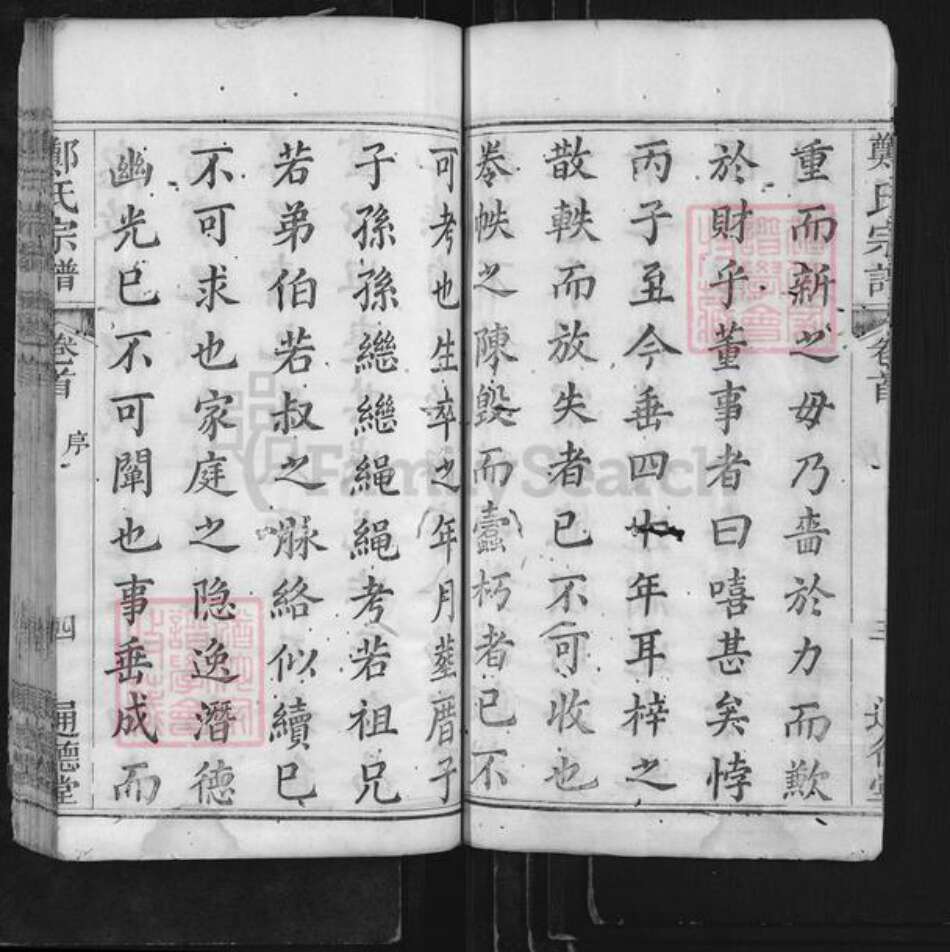 鄭氏宗譜 卷首 三
重而新之毋乃嗇於力而歉
於財乎董事者曰嘻甚矣悖
丙子至今垂四十年耳梓之
散軼而放失者已不可收也
卷帙之陳毀而蠹朽者已不
可考也生卒之年月塟厝子
子孫孫繼繼繩繩考若祖兄
若弟伯若叔之脉絡似續巳
不可求也家庭之隐逸潛德
幽光已不可闡也事垂成而
鄭氏宗譜 卷首 序 四 通德堂
FamilySearch